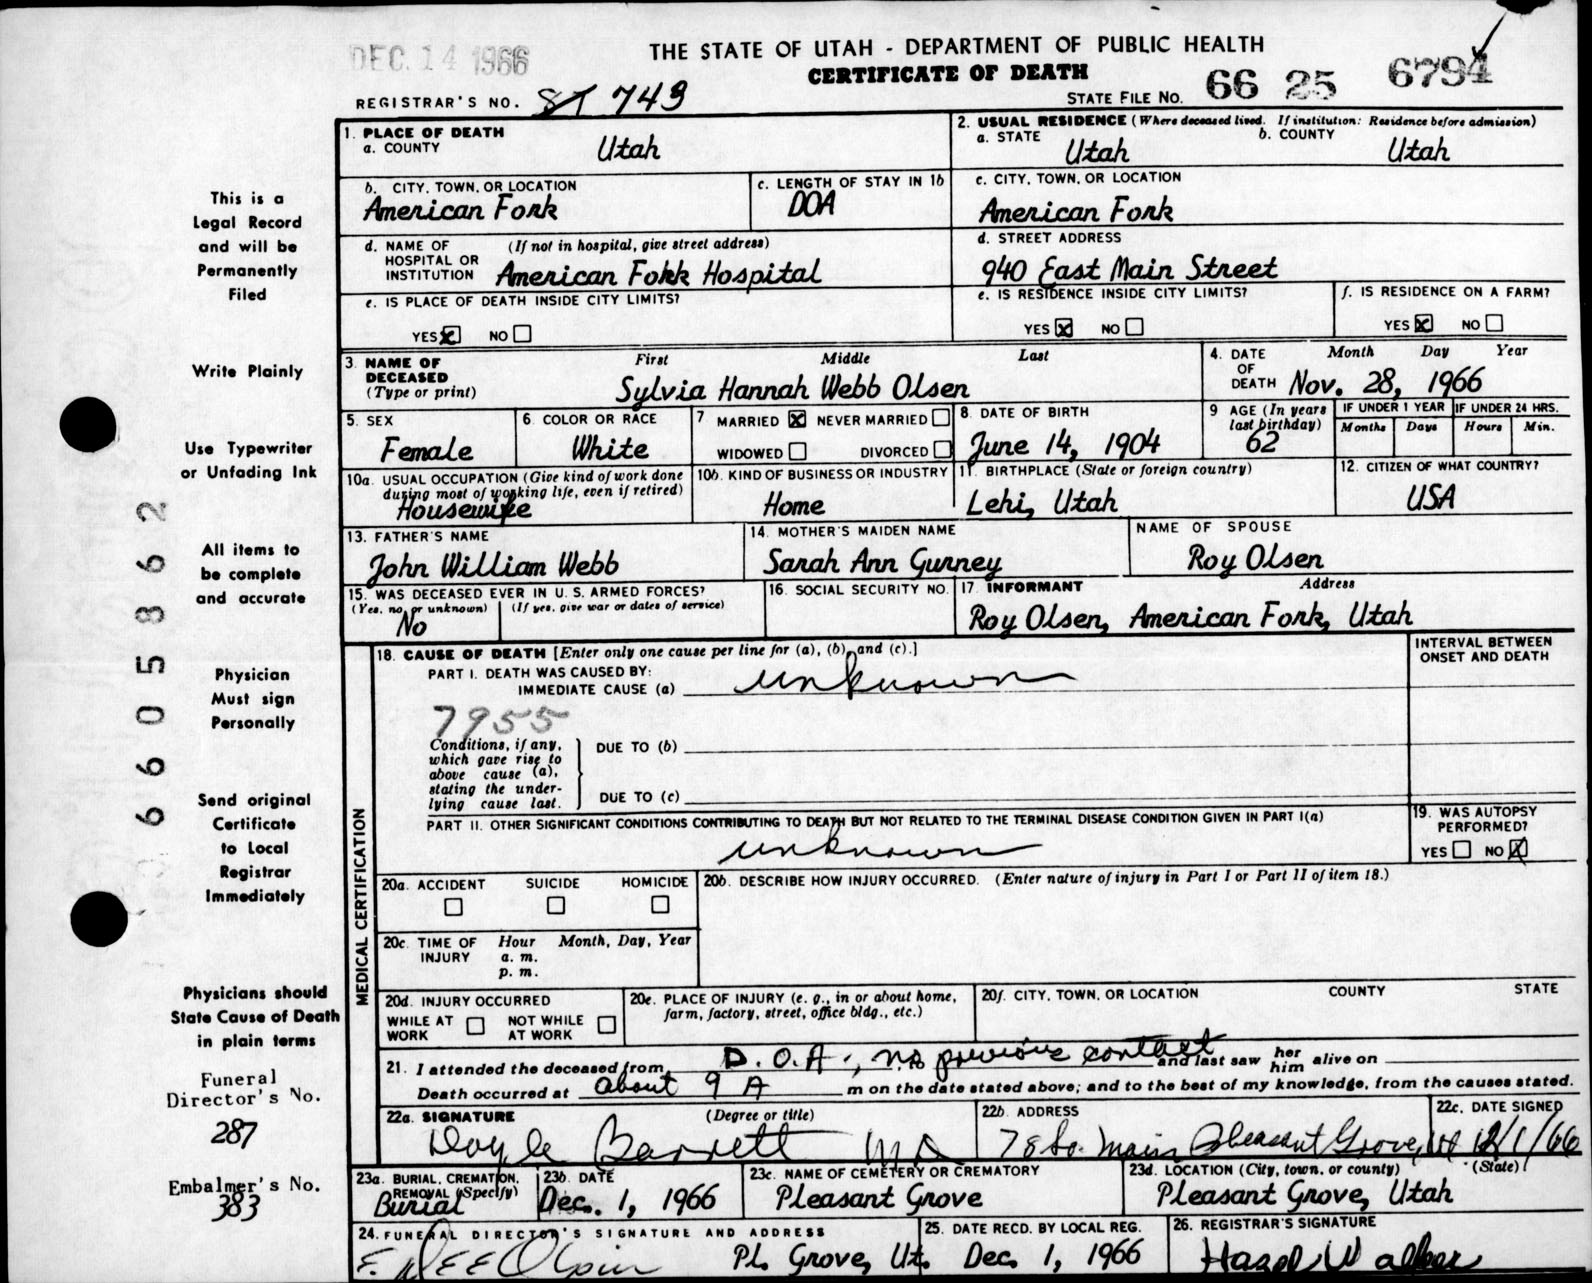 DEC. 14 1966
THE STATE OF UTAH - DEPARTMENT OF PUBLIC HEALTH
CERTIFICATE OF DEATH
REGISTRAR'S NO. 743
STATE FILE NO. 66 25 6794
This is a
Legal Record
and will be
Permanently
Filed
Write Plainly
Use Typewriter
or Unfading Ink
All items to
be complete
and accurate
Physician
Must sign
Personally
Send original
Certificate
to Local
Registrar
Immediately
Physicians should
State Cause of Death
in plain terms
Funeral
Director's No.
287
Embalmer's No.
383
66058 62
1. PLACE OF DEATH
a. COUNTY
Utah
2. USUAL RESIDENCE (Where deceased lived. If institution: Residence before admission)
a. STATE b. COUNTY
Utah Utah
b. CITY, TOWN, OR LOCATION
American Fork
c. LENGTH OF STAY IN 1b
DOA
c. CITY, TOWN, OR LOCATION
American Fork
d. NAME OF (If not in hospital, give street address)
HOSPITAL OR
INSTITUTION American Fokk Hospital
d. STREET ADDRESS
940 East Main Street
e. IS PLACE OF DEATH INSIDE CITY LIMITS?
YES NO
e. IS RESIDENCE INSIDE CITY LIMITS?
YES NO
f. IS RESIDENCE ON A FARM?
YES NO
3. NAME OF First Middle Last
DECEASED
(Type or print) Sylvia Hannah Webb Olsen
4. DATE Month Day Year
OF
DEATH Nov. 28, 1966
5. SEX
Female
6. COLOR OR RACE
White
7 MARRIED NEVER MARRIED
WIDOWED DIVORCED
8. DATE OF BIRTH
June 14, 1904
9 AGE (In years
last birthday)
62
IF UNDER 1 YEAR IF UNDER 24 HRS.
Months Days Hours Min.
10a. USUAL OCCUPATION (Give kind of work done
during most of working life, even if retired)
Housewife
10b. KIND OF BUSINESS OR INDUSTRY
Home
11. BIRTHPLACE (State or foreign country)
Lehi, Utah
12. CITIZEN OF WHAT COUNTRY?
USA
13. FATHER'S NAME
John William Webb
14. MOTHER'S MAIDEN NAME
Sarah Ann Gurney
NAME OF SPOUSE
Roy Olsen
15. WAS DECEASED EVER IN U. S. ARMED FORCES?
(Yes, no, or unknown) (If yes, give war or dates of service)
No
16. SOCIAL SECURITY NO.
17. INFORMANT Address
Roy Olsen, American Fork, Utah
MEDICAL CERTIFICATION
18. CAUSE OF DEATH [Enter only one cause per line for (a), (b), and (c).]
INTERVAL BETWEEN
ONSET AND DEATH
PART I. DEATH WAS CAUSED BY:
IMMEDIATE CAUSE (a) unknown
7955
Conditions, if any,
which gave rise to
above cause (a),
stating the under-
lying cause last.
DUE TO (b)
DUE TO (c)
PART II. OTHER SIGNIFICANT CONDITIONS CONTRIBUTING TO DEATH BUT NOT RELATED TO THE TERMINAL DISEASE CONDITION GIVEN IN PART I(a)
unknown
19. WAS AUTOPSY
PERFORMED?
YES NO
20a. ACCIDENT SUICIDE HOMICIDE
20b. DESCRIBE HOW INJURY OCCURRED. (Enter nature of injury in Part I or Part II of item 18.)
20c. TIME OF Hour Month, Day, Year
INJURY a. m.
p. m.
20d. INJURY OCCURRED
WHILE AT NOT WHILE
WORK AT WORK
20e. PLACE OF INJURY (e. g., in or about home,
farm, factory, street, office bldg., etc.)
20f. CITY, TOWN, OR LOCATION COUNTY STATE
21. I attended the deceased from D.O.A., no previous contact and last saw her him alive on
Death occurred at about 9 A m on the date stated above; and to the best of my knowledge, from the causes stated.
22a. SIGNATURE (Degree or title)
Doyle Barrett MD
22b. ADDRESS
78 So. Main Pleasant Grove, Ut
22c. DATE SIGNED
12/1/66
23a. BURIAL, CREMATION,
REMOVAL (Specify)
Burial
23b. DATE
Dec. 1, 1966
23c. NAME OF CEMETERY OR CREMATORY
Pleasant Grove
23d. LOCATION (City, town, or county) (State)
Pleasant Grove, Utah
24. FUNERAL DIRECTOR'S SIGNATURE AND ADDRESS
Pl. Grove, Ut.
25. DATE RECD. BY LOCAL REG.
Dec. 1, 1966
26. REGISTRAR'S SIGNATURE
Hazel Walker